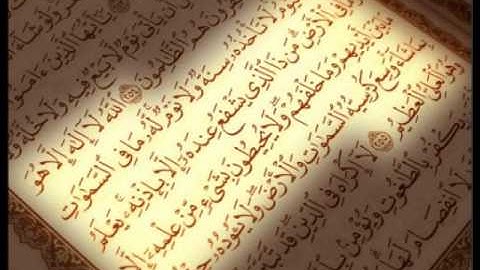 يَٰٓأَيُّهَا ٱلَّذِينَ ءَامَنُوٓا۟
أَن يَأْتِىَ يَوْمٌ لَّا بَيْعٌ فِيهِ وَلَا خُلَّةٌ
هُمُ ٱلظَّٰلِمُونَ ٢٥٤ ٱللَّهُ لَآ إِلَٰهَ إِلَّا هُوَ
لَا تَأْخُذُهُۥ سِنَةٌ وَلَا نَوْمٌ لَّهُۥ مَا فِى ٱلسَّمَٰوَٰتِ
فِى ٱلْأَرْضِ مَن ذَا ٱلَّذِى يَشْفَعُ عِندَهُۥٓ إِلَّا بِإِذْنِهِۦ يَعْلَمُ
أَيْدِيهِمْ وَمَا خَلْفَهُمْ وَلَا يُحِيطُونَ بِشَىْءٍ مِّنْ عِلْمِهِۦٓ إِلَّا
بِمَا شَآءَ وَسِعَ كُرْسِيُّهُ ٱلسَّمَٰوَٰتِ وَٱلْأَرْضَ وَلَا يَـُٔودُهُۥ
وَهُوَ ٱلْعَلِىُّ ٱلْعَظِيمُ ٢٥٥ لَآ إِكْرَاهَ فِى ٱلدِّينِ قَد تَّبَيَّنَ
يَكْفُرْ بِٱلطَّٰغُوتِ وَيُؤْمِنۢ
لَا ٱنفِصَامَ لَهَا